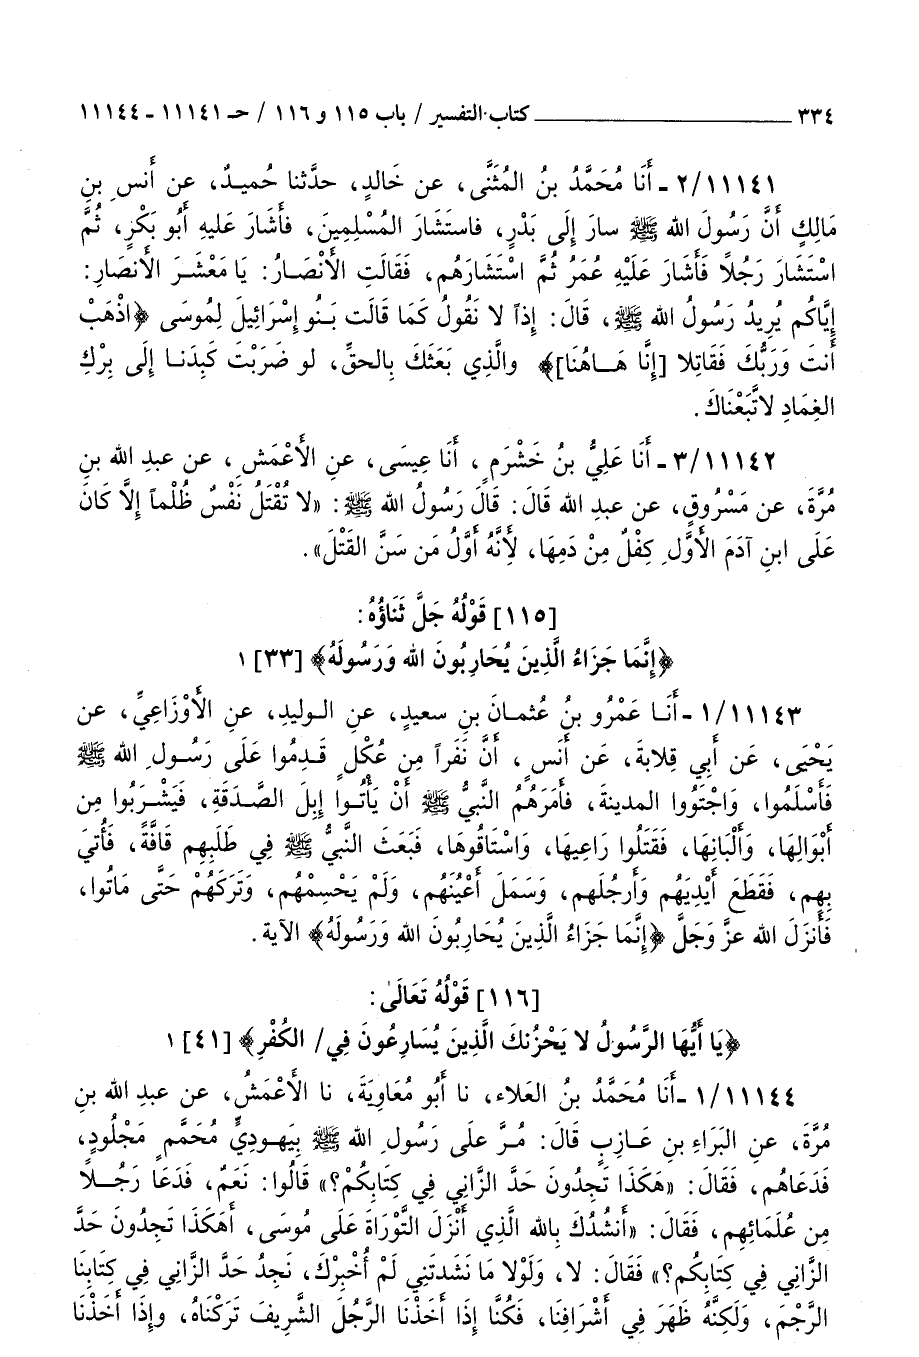 ٣٣٤ ــــــــــــــــــــ كتاب التفسير / باب ١١٥ و ١١٦ / حـ ١١١٤١ - ١١١٤٤
٢/١١١٤١ - أَنَا مُحَمَّدُ بنُ المُثَنَّى، عن خَالدٍ، حدَّثنا حُميدٌ، عن أَنس بنِ
مَالِكٍ أَنَّ رَسُولَ الله ﷺ سارَ إِلَى بَدْرٍ، فاستَشَارَ المُسْلِمِينَ، فَأَشَارَ عَليهِ أَبُو بَكْرٍ، ثُمَّ
اسْتَشَارَ رَجُلاً فَأَشَارَ عَلَيْهِ عُمَرُ ثُمَّ اسْتَشَارَهُم، فَقَالَتِ الْأَنْصَارُ: يَا مَعْشَرَ الْأَنصَارِ:
إِيَّاكُم يُرِيدُ رَسُولُ الله ﷺ، قَالَ: إِذاً لا نَقُولُ كَمَا قَالَت بَنُو إِسْرَائِيلَ لِمُوسَى ﴿اذْهَبْ
أَنتَ وَرَبُّكَ فَقَاتِلا [إِنَّا هَاهُنَا]﴾ والَّذِي بَعَثَكَ بِالحقِّ، لو ضَرَبْتَ كَبِدَنا إِلَى بِرْكِ
الغِمَادِ لاتَّبَعْنَاكَ.
٣/١١١٤٢ - أَنَا عَلِيُّ بنُ خَشْرَمٍ، أَنَا عِيسَى، عنِ الأَعْمَشِ، عن عبدِ الله بنِ
مُرَّةَ، عن مَسْرُوقٍ، عن عبدِ الله قَالَ: قَالَ رَسُولُ الله ﷺ: «لا تُقْتَلُ نَفْسٌ ظُلْماً إِلَّا كَانَ
عَلَى ابنِ آدَمَ الْأَوَّلِ كِفْلٌ مِنْ دَمِهَا، لِأَنَّهُ أَوَّلُ مَن سَنَّ القَتْلَ».
[١١٥] قَوْلُهُ جَلَّ ثَنَاؤُهُ:
﴿إِنَّمَا جَزَاءُ الَّذِينَ يُحَارِبُونَ الله وَرَسُولَهُ﴾ [٣٣] ١
١/١١١٤٣ - أَنَا عَمْرُو بنُ عُثمانَ بنِ سعيدٍ، عنِ الوليدِ، عنِ الأَوْزَاعِيِّ، عن
يَحْيَى، عَن أَبِي قِلابةَ، عَن أَنسٍ، أَنَّ نَفَراً مِن عُكْلٍ قَدِمُوا عَلَى رَسُولِ الله ﷺ
فَأَسْلَمُوا، وَاجْتَوُوا المدينةَ، فَأَمَرَهُم النَّبيُّ ﷺ أَنْ يَأْتُوا إِبلَ الصَّدَقَةِ، فَيَشْرَبُوا مِن
أَبْوَالِهَا، وَأَلْبَانِهَا، فَقَتَلُوا رَاعِيهَا، وَاسْتَاقُوهَا، فَبَعَثَ النَّبيُّ ﷺ فِي طَلَبِهِم قَافَّةً، فَأُتيَ
بِهِم، فَقَطَعَ أَيْدِيَهُم وَأَرجُلَهم، وَسَمَلَ أَعْيُنَهُم، وَلَمْ يَحْسِمْهُم، وَتَرَكَهُمْ حَتَّى مَاتُوا،
فَأَنزَلَ الله عزَّ وَجَلَّ ﴿إِنَّمَا جَزَاءُ الَّذِينَ يُحَارِبُونَ الله وَرَسُولَهُ﴾ الآية.
[١١٦] قَوْلُهُ تَعَالَى:
﴿يَا أَيُّهَا الرَّسُولُ لا يَحْزُنكَ الَّذِينَ يُسَارِعُونَ فِي/ الكُفْرِ﴾ [٤١] ١
١/١١١٤٤ - أَنَا مُحَمَّدُ بنُ العَلاء، نا أَبُو مُعَاوِيَةَ، نا الأَعْمَشُ، عن عبدِ الله بنِ
مُرَّةَ، عنِ البَرَاءِ بنِ عَازِبٍ قَالَ: مُرَّ علَى رَسُولِ الله ﷺ بِيَهوديٍّ مُحَمَّمٍ مَجْلُودٍ،
فَدَعَاهُم، فَقَالَ: «هَكَذَا تَجِدُونَ حَدَّ الزَّانِي فِي كِتَابِكُمْ؟» قَالُوا: نَعَمْ، فَدَعَا رَجُلاً
مِن عُلَمَائِهِم، فَقَالَ: «أَنشُدُكَ بِالله الَّذِي أَنْزَلَ التَّوْرَاةَ عَلَى مُوسَى، أَهَكَذَا تَجِدُونَ حَدَّ
الزَّانِي فِي كِتَابِكُم؟» فَقَالَ: لا، وَلَوْلا مَا نَشَدتَنِي لَمْ أُخْبِرْكَ، نَجِدُ حَدَّ الزَّانِي فِي كِتَابِنَا
الرَّجْمَ، وَلَكِنَّهُ ظَهَرَ فِي أَشْرَافِنَا، فَكُنَّا إِذَا أَخَذْنَا الرَّجُلَ الشَّرِيفَ تَرَكْنَاهُ، وإِذَا أَخَذْنَا